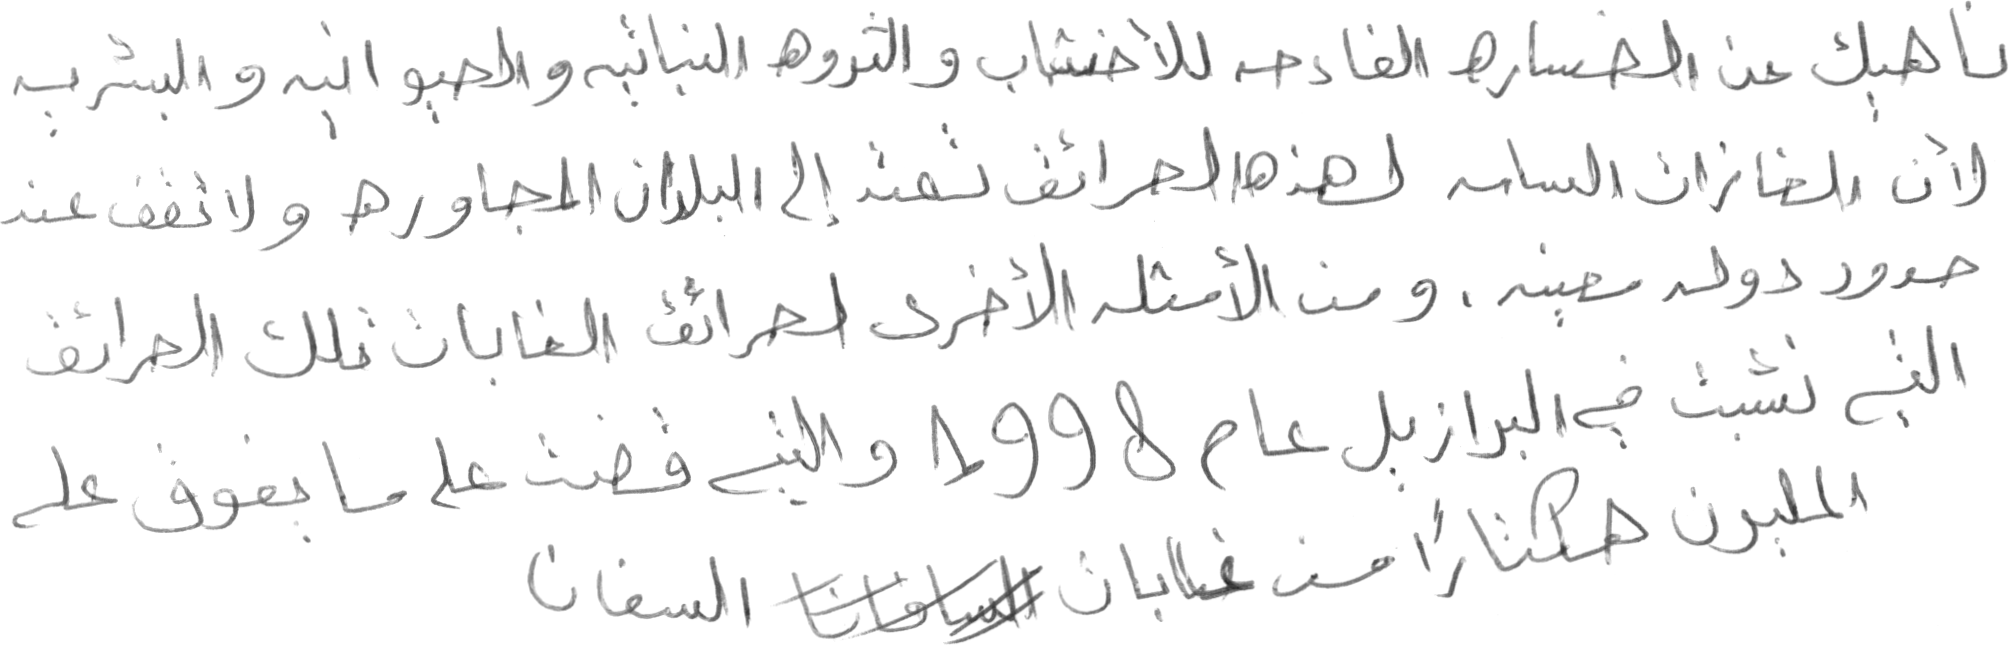 ناهيك عن الخساره الفادحه للأخشاب والثروه النباتيه والحيوانيه والبشريه
لأن الغازات السامه لهذه الحرائق تمتد إلى البلدان المجاوره ولا تقف عند
حدود دوله معينه. ومن الأمثله الأخرى لحرائق الغابات تلك الحرائق
التي نشبت في البرازيل عام 1998 والتي قضت على ما يفوق على
المليون هكتارًا من غابات السفانا